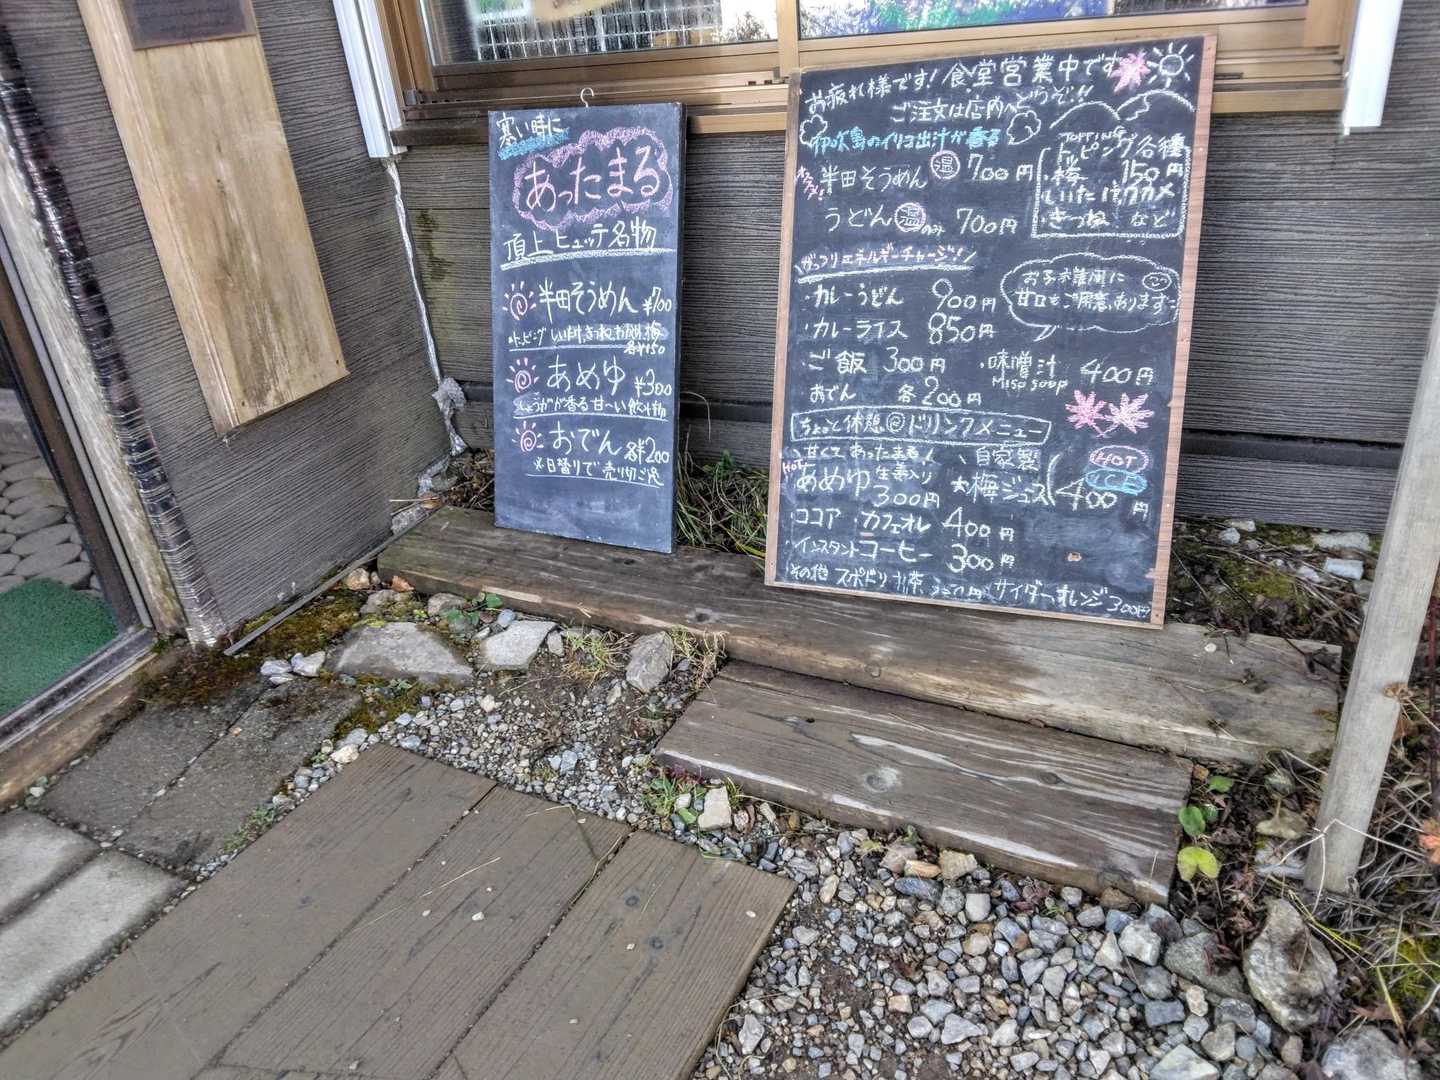 寒い時に
あったまる
頂上ヒュッテ名物
半田そうめん ¥700
トッピング しいたけ、きつね、お餅、梅
各¥150
あめゆ ¥300
しょうがが香る甘〜い飲み物
おでん 各¥200
※日替りで売り切れご免
お疲れ様です！食堂営業中です
ご注文は店内へどうぞ!!
伊吹島のイリコ出汁が香る
オススメ！
半田そうめん 温 700円
うどん 温のみ 700円
TOPPING
トッピング各種
・梅 150円
・しいたけ・ワカメ
・きつね など
がっつりエネルギーチャージ！
・カレーうどん 900円
・カレーライス 850円
お子様用に
甘口もご用意あります
・ご飯 300円
・味噌汁 400円
Miso soup
おでん 各200円
ちょっと休憩 ドリンクメニュー
甘くてあったまる！
HOT あめゆ 生姜入り 300円
自家製
★梅ジュース 400円
HOT
ICE
・ココア ・カフェオレ 400円
・インスタントコーヒー 300円
その他 スポドリ お茶 円 サイダー、オレンジ 300円